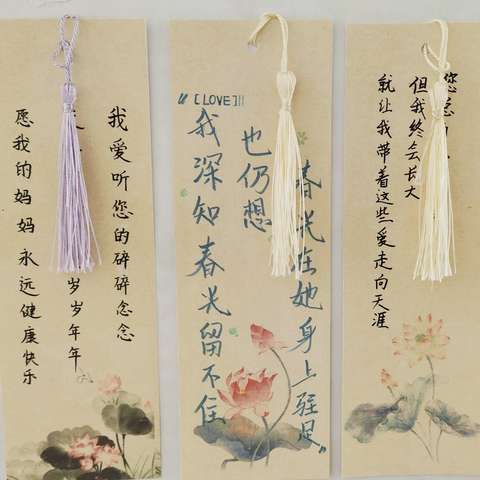 我爱听您的碎碎念念
岁岁年年
愿我的妈妈永远健康快乐
“[LOVE]!!
我深知春光留不住
也仍想
春光在她身上驻足”
您总
但我终会长大
就让我带着这些爱走向天涯